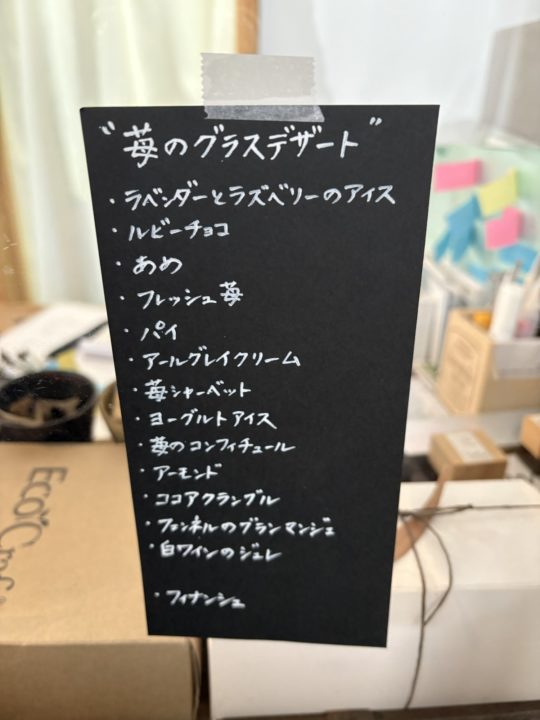 "苺のグラスデザート"
・ラベンダーとラズベリーのアイス
・ルビーチョコ
・あめ
・フレッシュ苺
・パイ
・アールグレイクリーム
・苺シャーベット
・ヨーグルトアイス
・苺のコンフィチュール
・アーモンド
・ココアクランブル
・フェンネルのブランマンジェ
・白ワインのジュレ
・フィナンシェ